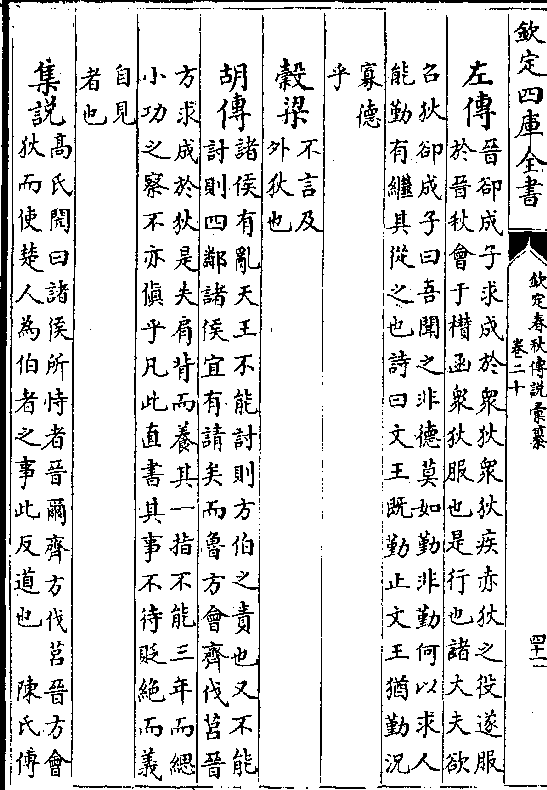 欽定四庫全書
欽定春秋傳說彙纂
卷二十
四十一
左傳晉郤成子求成於眾狄眾狄疾赤狄之役遂服
於晉秋會于欑函眾狄服也是行也諸大夫欲
召狄郤成子曰吾聞之非德莫如勤非勤何以求人
能勤有繼其從之也詩曰文王既勤止文王猶勤況
寡德
乎
穀梁不言及
外狄也
胡傳諸侯有亂天王不能討則方伯之責也又不能
討則四鄰諸侯宜有請矣而魯方會齊伐莒晉
方求成於狄是失肩背而養其一指不能三年而緦
小功之察不亦傎乎凡此直書其事不待貶絕而義
自見
者也
集說高氏閌曰諸侯所恃者晉爾齊方伐莒晉方會
狄而使楚人為伯者之事此反道也 陳氏傅